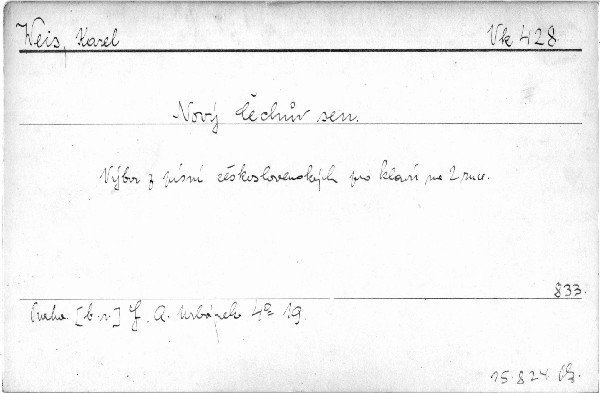 Weis, Karel Vk 428
Nový Čechův sen.
Výbor z písní československých pro klavír na 2 ruce.
833.
Praha. [b.r.] F. A. Urbánek 4° 19.
15.824